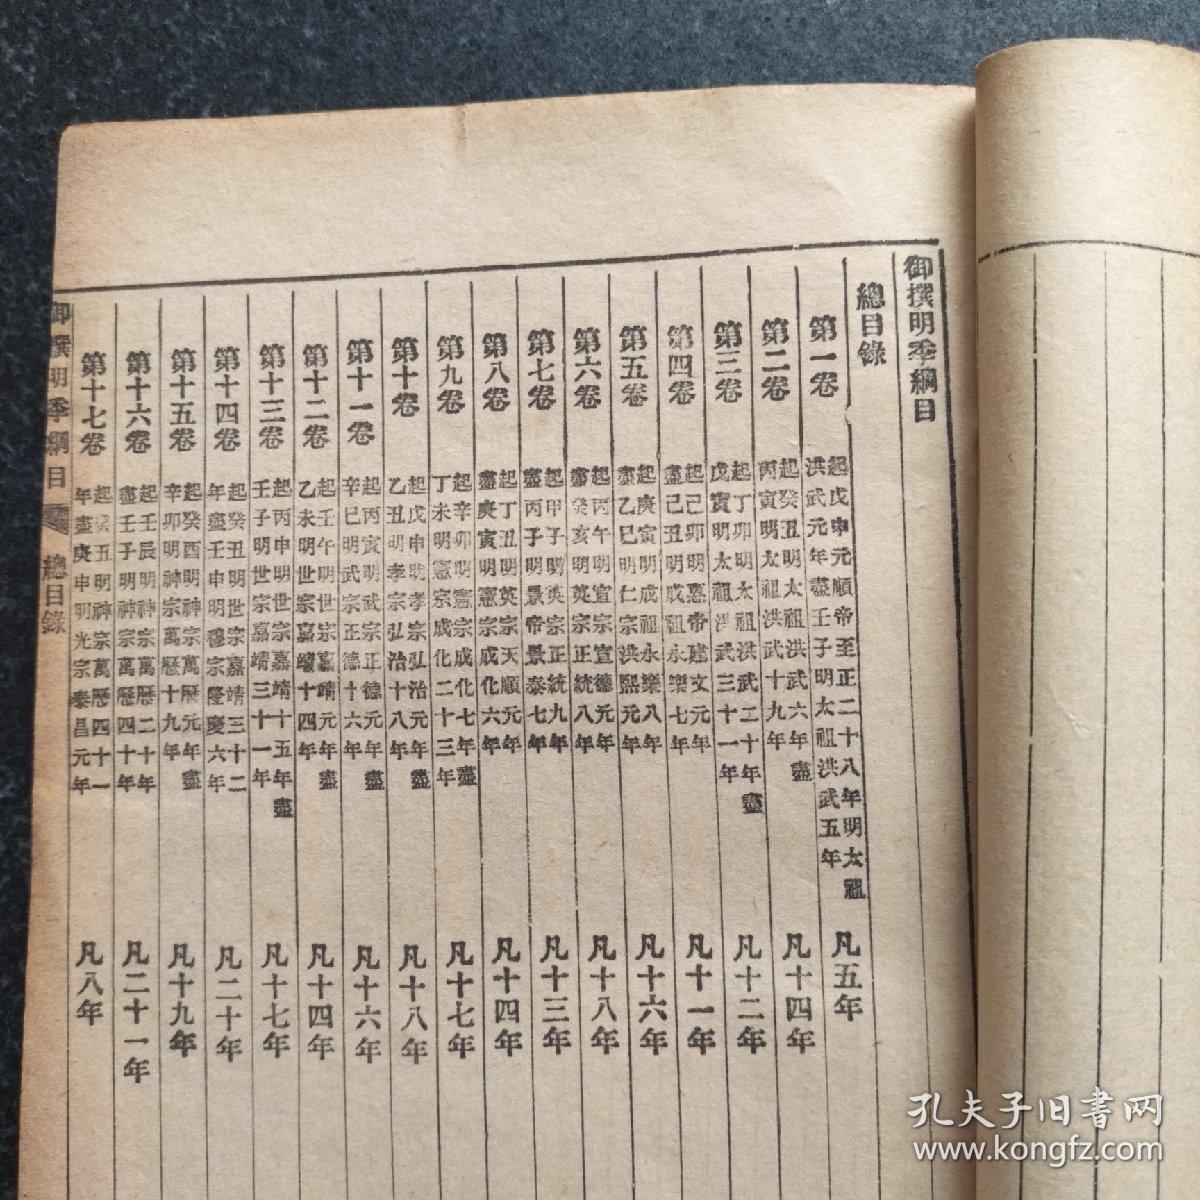 御撰明季綱目
總目錄
第一卷 起戊申元順帝至正二十八年明太祖洪武元年盡壬子明太祖洪武五年 凡五年
第二卷 起癸丑明太祖洪武六年盡丙寅明太祖洪武十九年 凡十四年
第三卷 起丁卯明太祖洪武二十年盡戊寅明太祖洪武三十一年 凡十二年
第四卷 起己卯明惠帝建文元年盡己丑明成祖永樂七年 凡十一年
第五卷 起庚寅明成祖永樂八年盡乙巳明仁宗洪熙元年 凡十六年
第六卷 起丙午明宣宗宣德元年盡癸亥明英宗正統八年 凡十八年
第七卷 起甲子明英宗正統九年盡丙子明景帝景泰七年 凡十三年
第八卷 起丁丑明英宗天順元年盡庚寅明憲宗成化六年 凡十四年
第九卷 起辛卯明憲宗成化七年盡丁未明憲宗成化二十三年 凡十七年
第十卷 起戊申明孝宗弘治元年盡乙丑明孝宗弘治十八年 凡十八年
第十一卷 起丙寅明武宗正德元年盡辛巳明武宗正德十六年 凡十六年
第十二卷 起壬午明世宗嘉靖元年盡乙未明世宗嘉靖十四年 凡十四年
第十三卷 起丙申明世宗嘉靖十五年盡壬子明世宗嘉靖三十一年 凡十七年
第十四卷 起癸丑明世宗嘉靖三十二年盡壬申明穆宗隆慶六年 凡二十年
第十五卷 起癸酉明神宗萬歷元年盡辛卯明神宗萬歷十九年 凡十九年
第十六卷 起壬辰明神宗萬歷二十年盡壬子明神宗萬歷四十年 凡二十一年
第十七卷 起癸丑明神宗萬歷四十一年盡庚申明光宗泰昌元年 凡八年
御撰明季綱目 總目錄
孔夫子旧书网
www.kongfz.com